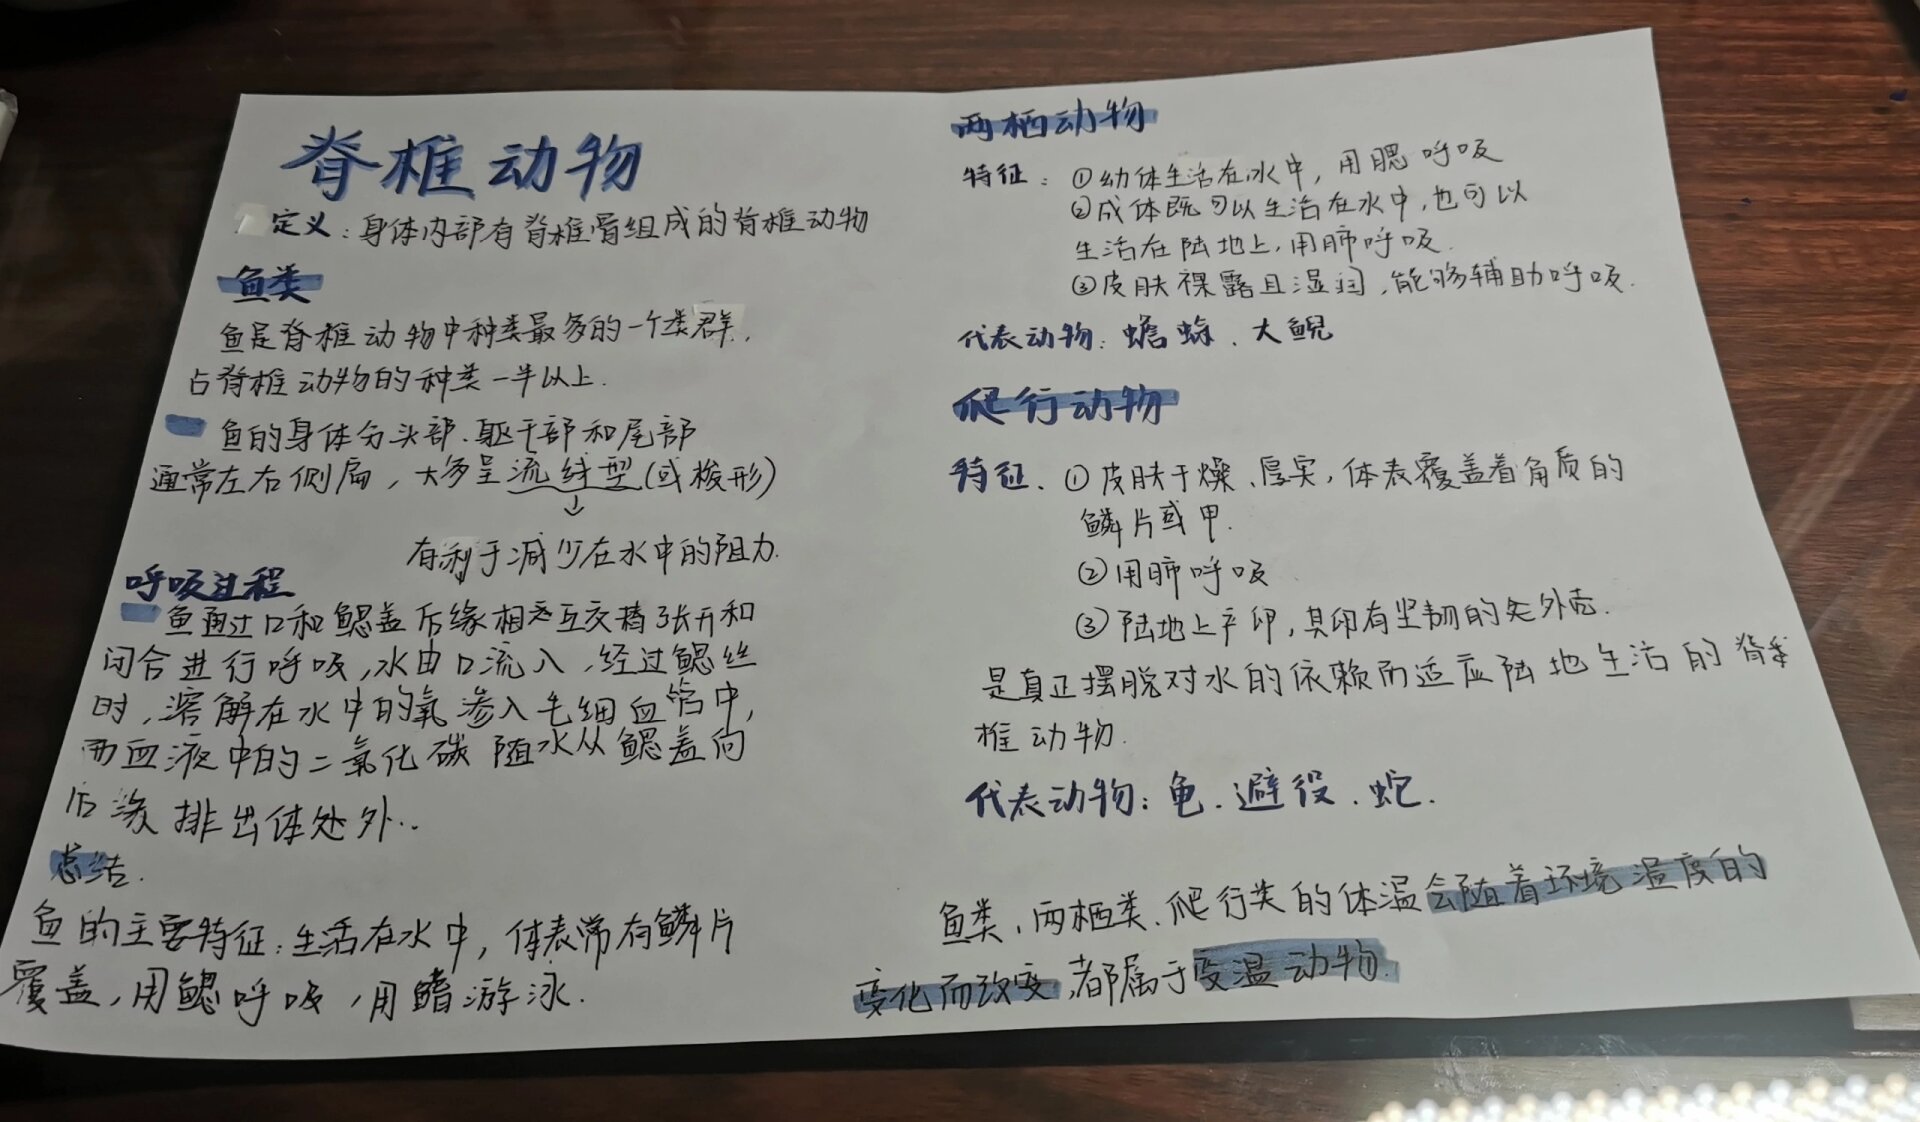 脊椎动物
定义：身体内部有脊椎骨组成的脊椎动物
鱼类
鱼是脊椎动物中种类最多的一个类群，
占脊椎动物的种类一半以上.
鱼的身体分头部、躯干部和尾部
通常左右侧扁，大多呈流线型(或梭形)
有利于减少在水中的阻力.
呼吸过程
鱼通过口和鳃盖后缘相交互交替张开和
闭合进行呼吸,水由口流入,经过鳃丝
时,溶解在水中的氧渗入毛细血管中,
而血液中的二氧化碳随水从鳃盖向
后缘排出体处外..
总结.
鱼的主要特征:生活在水中,体表常有鳞片
覆盖,用鳃呼吸,用鳍游泳.
两栖动物
特征：①幼体生活在水中，用腮呼吸
②成体既可以生活在水中,也可以
生活在陆地上,用肺呼吸.
③皮肤裸露且湿润,能够辅助呼吸.
代表动物：蟾蜍、大鲵
爬行动物
特征、①皮肤干燥、厚实,体表覆盖着角质的
鳞片或甲.
②用肺呼吸
③陆地上产卵,其卵有坚韧的处外壳.
是真正摆脱对水的依赖而适应陆地生活的脊
椎动物.
代表动物：龟、避役、蛇.
鱼类、两栖类、爬行类的体温会随着环境温度的
变化而改变,都属于变温动物.